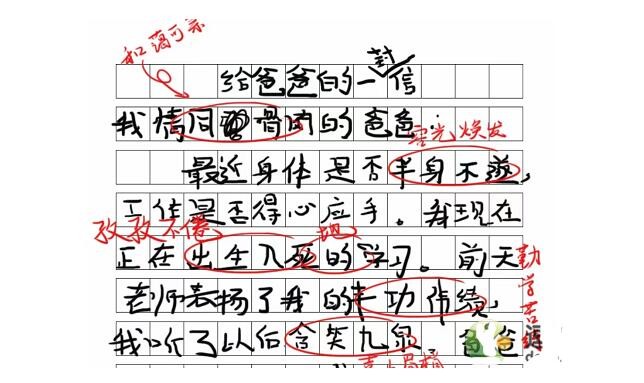 和蔼可亲
给爸爸的一封信
我情同骨肉的爸爸：
容光焕发
最近身体是否半身不遂，
工作是否得心应手。我现在
孜孜不倦 地
正在出生入死的学习。前天
老师表扬了我的丰功伟绩，
勤学苦练
我听了以后含笑九泉。爸爸
喜上眉梢